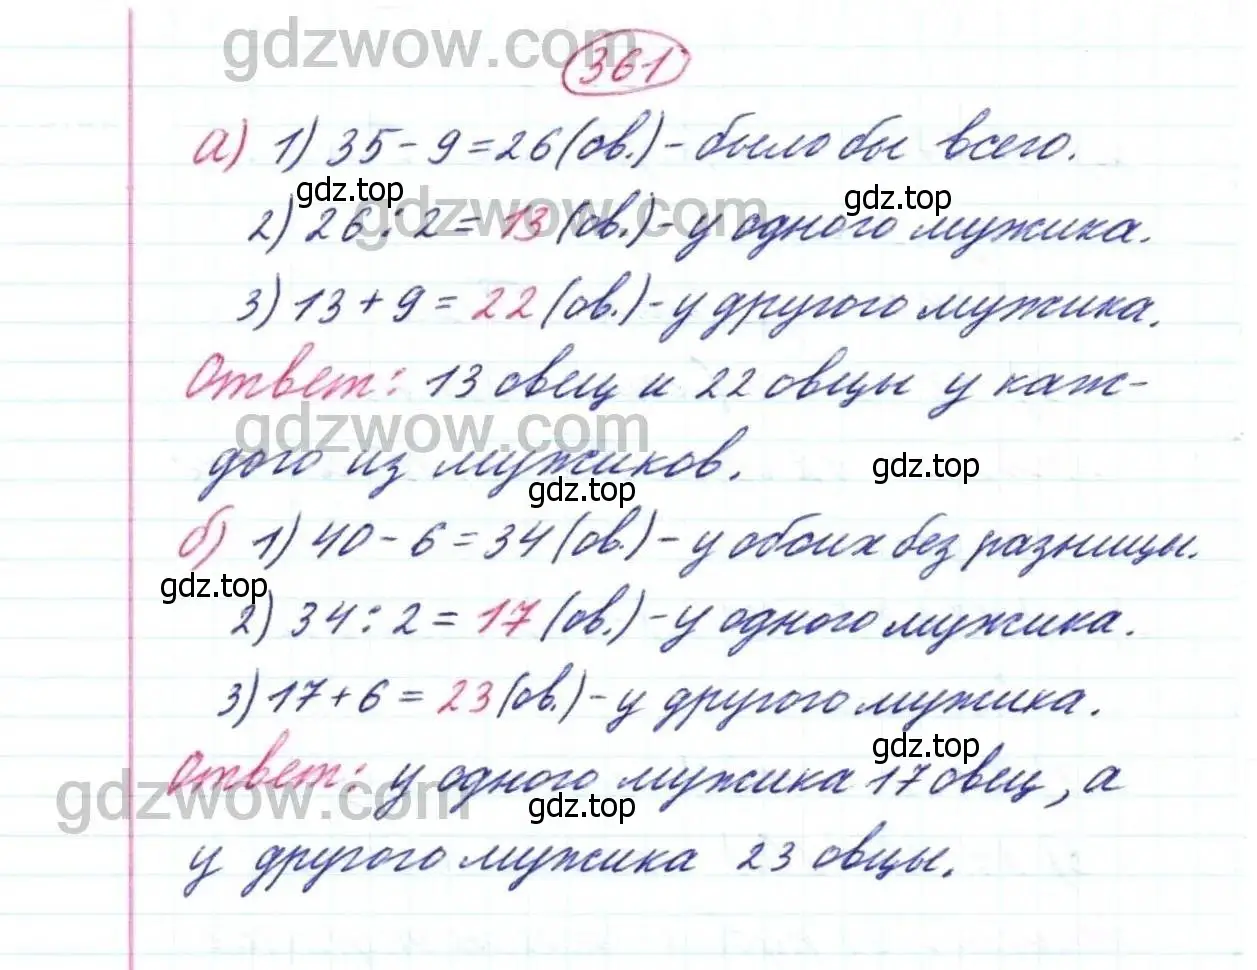 gdzwow.com
361
а) 1) 35 - 9 = 26 (ов.) - было бы всего.
gdz.top gdz.top
gdzwow.com
2) 26 : 2 = 13 (ов.) - у одного мужика.
3) 13 + 9 = 22 (ов.) - у другого мужика.
Ответ: 13 овец и 22 овцы у каж-
gdzwow.com
дого из мужиков.
gdz.top
gdz.top
б) 1) 40 - 6 = 34 (ов.) - у обоих без разницы.
gdz.top
2) 34 : 2 = 17 (ов.) - у одного мужика.
3) 17 + 6 = 23 (ов.) - у другого мужика.
gdz.top
Ответ: у одного мужика 17 овец, а
gdzwow.com
gdz.top
у другого мужика 23 овцы.